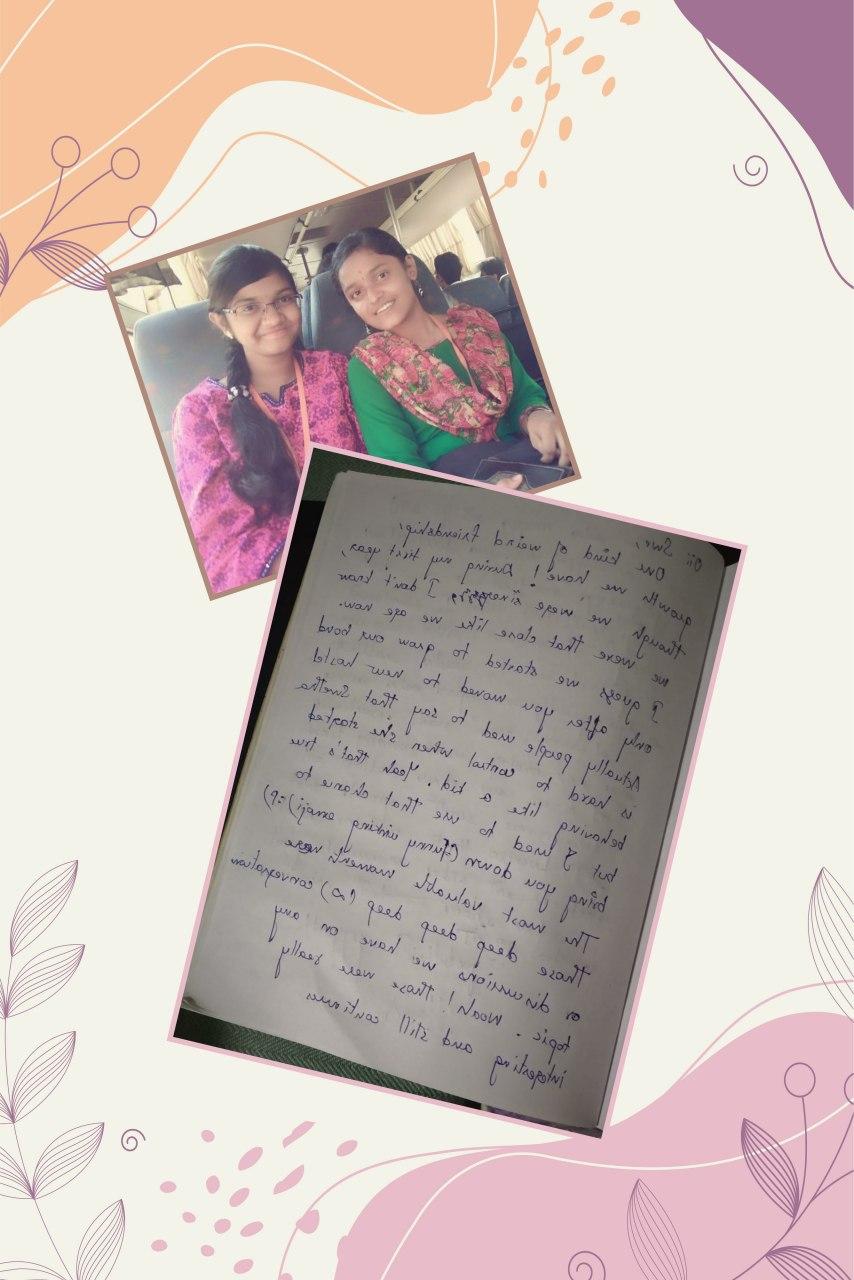 Oii Swe,
Our kind of weird friendship,
growth we have! During my first year,
though we were I don't know
we were that close like we are now.
I guess we started to grow our bond
only after you moved to new hostel
Actually people used to say that Swetha
is hard to control when she started
behaving like a kid. Yeah that's true
but I used to use that chance to
bring you down (funny winking emoji) (;P)
The most valuable moments were
those deep deep deep (∞) conversation
or discussions we have on any
topic. Woah! those were really
interesting and still continues